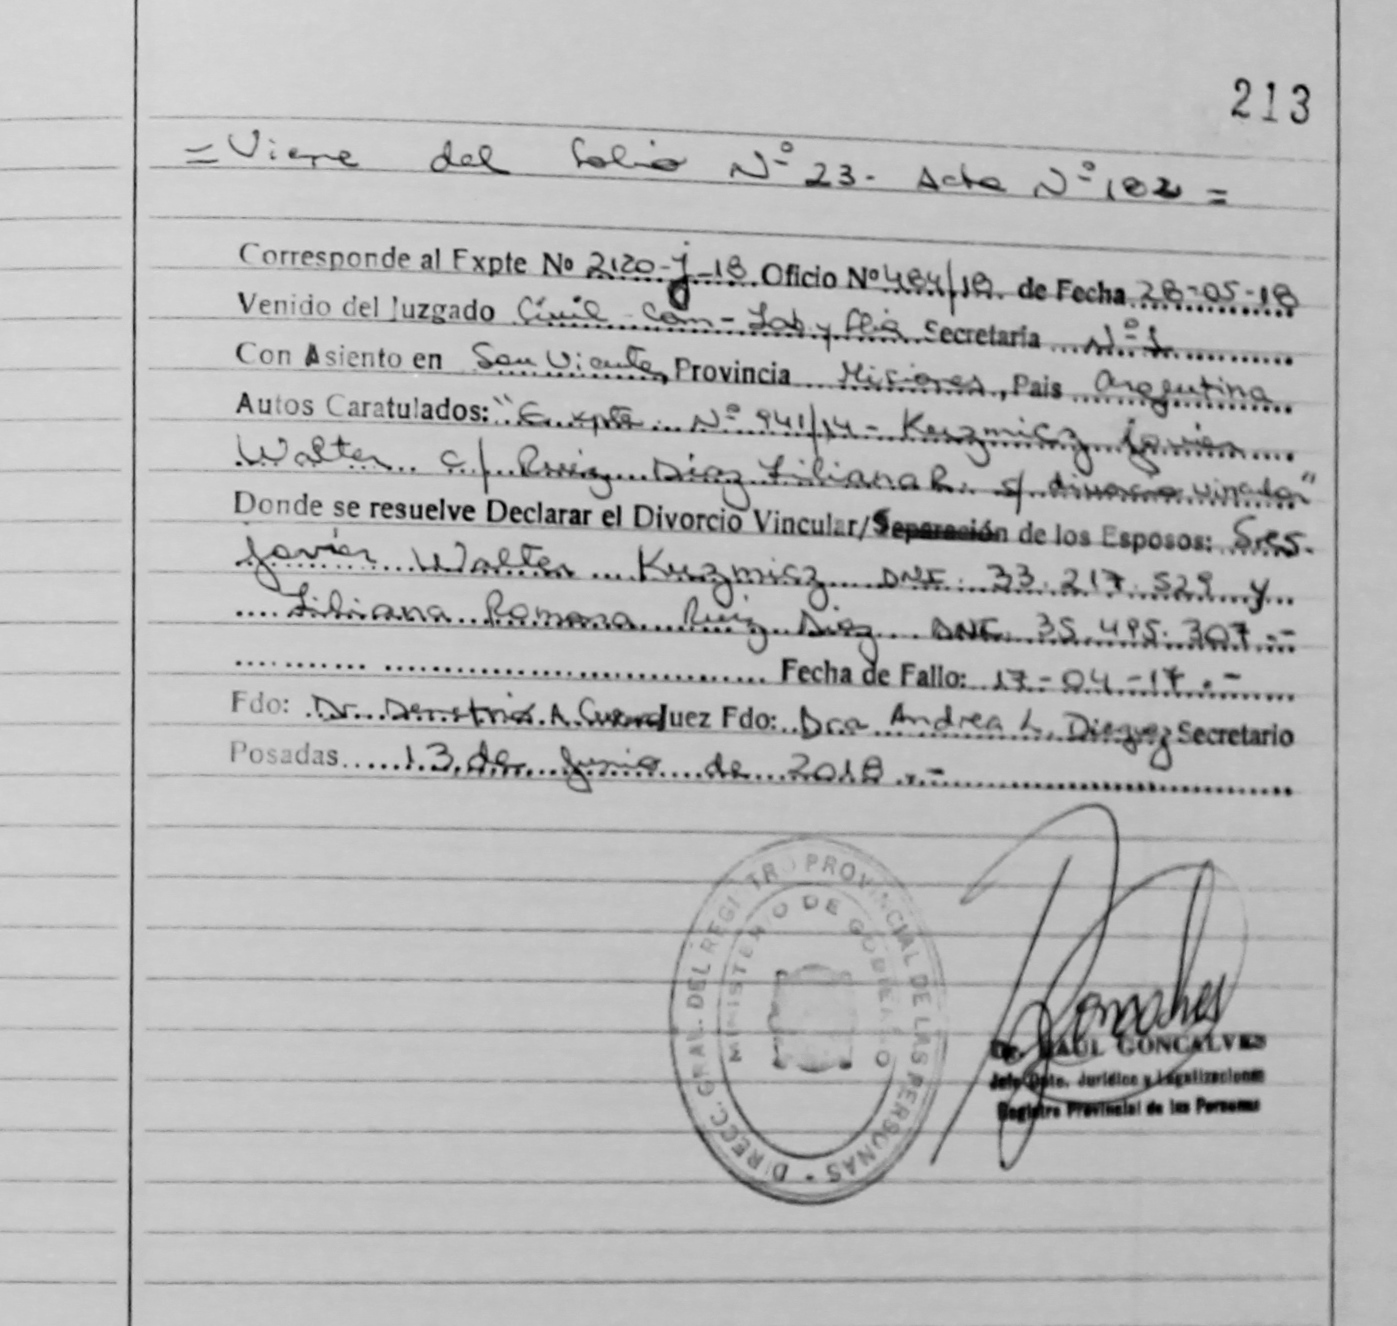 213
= Viene del folio Nº 23 - Acta Nº 182 =
Corresponde al Expte Nº 2120-J-18 Oficio Nº 484/18. de Fecha 28-05-18
Venido del Juzgado Civil Com - Lab y flia Secretaría Nº 1
Con Asiento en San Vicente, Provincia Misiones, Pais Argentina
Autos Caratulados: "Expte Nº 941/14 - Kuzmicz Javier
Walter c/ Ruiz Diaz Liliana R. s/ divorcio vincular"
Donde se resuelve Declarar el Divorcio Vincular/Separación de los Esposos: Sres.
Javier Walter Kuzmicz DNI. 33.217.529 y
Liliana Romana Ruiz Diaz DNI. 35.495.307.-
Fecha de Fallo: 17-04-17.-
Fdo: Dr. A. Juez Fdo: Dra Andrea L. Dieguez Secretario
Posadas 13 de Junio de 2018.-
DIRECC. GRAL. DEL REGISTRO PROVINCIAL DE LAS PERSONAS -
MINISTERIO DE GOBIERNO
Goncalves
Dr. RAUL GONCALVES
Jefe Dpto. Jurídico y Legalizaciones
Registro Provincial de las Personas